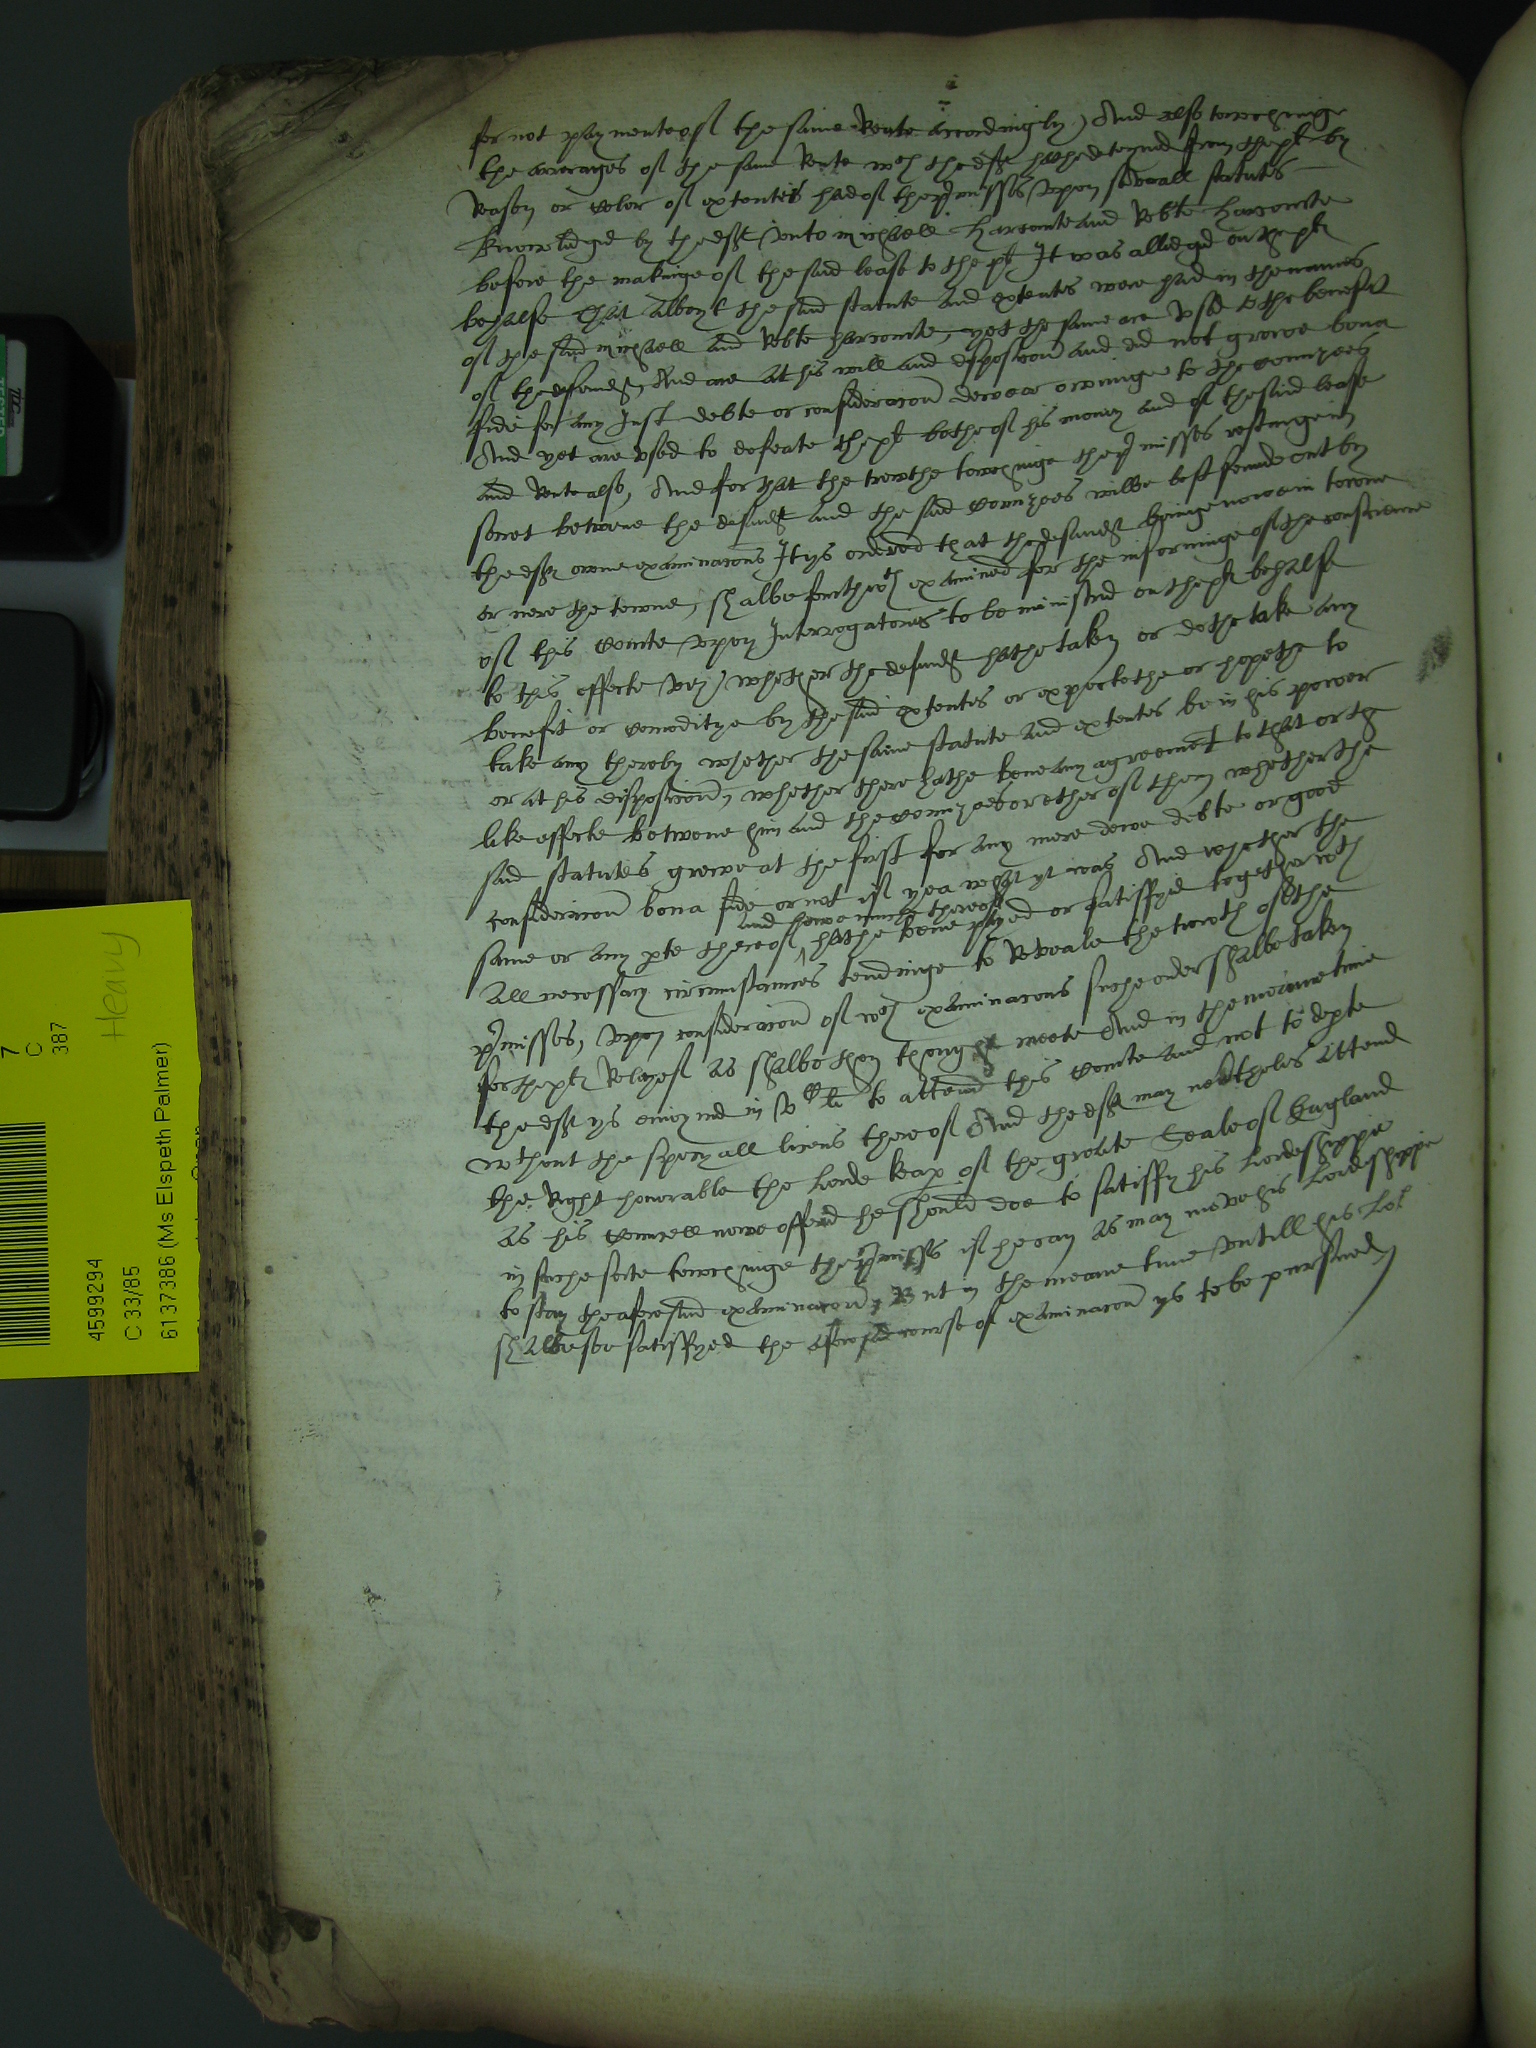 for not paymente of the same Rente accordingly, And also towchinge
the arrerages of the same Rente wch the deft hathe deteyned from the pl by
Reason or color of extentes had of the pmisses vpon severall statutes
knowledged by the deft vnto michaell Harcourte and Robte Harcourte
before the makinge of the said lease to the pl It was alledged on the pl
behalfe that albeyt the said statute and extentes were had in the names
of the said michaell and Robte harcourte, yet the same are vsed to the benefit
of the defendt, And are at his will and disposicon and did not growe bona
fide for any Just debte or consideracon dewe or owinge to the connizees
And yet are vsed to defeate the pl bothe of his money and of the said lease
and Rente also, And for that the trowthe towchinge the pmisses restinge in
secret betwene the defendt and the said connizees wilbe best founde out by
the deft owne examinacons It ys ordered that the defendt beinge nowe in towne
or nere the towne, shalbe forthwth examined for the informinge of the conscience
of this Courte vpon Interrogatories to be ministred on the pl behalfe
to this effecte viz, whether the defendt hathe taken or dothe take any
benefit or comoditye by the said extentes or expectethe or hopethe to
take any thereby whether the same statute and extentes be in his power
or at his disposicon, whether there hathe bene any agreement to that or the
like effecte betwene him and the connizees or ether of them whether the
said statutes growe at the first for any mere dewe debte or good
consideracon bona fide or not if yea what yt was And whether the
and howe muche thereof
same or any pte thereof hathe bene payed or satisfyed together wth
All necessary circumstances tendinge to Reveale the trewth of the
pmisses, vpon consideracon of wch examinacons suche order shalbe taken
for the pl Relyef as shalbe then thought meete And in the meane time
the deft ys enioyned in li to attend this Courte and not to depte
wthout the specyall licens thereof And the deft may netheles attend
the Right honorable the Lorde keap of the greate Seale of England
As his Councell nowe offered he should doe to satisfy his Lordeshippe
in suche sorte towchinge the pmisses if he can as may move his Lordeshippe
to stay the aforesaid examinacon, But in the meane time vntill his Lo
shalbe soe satisfyed the aforesaid course of examinacon ys to be pursued
7
C
387
Heavy
4599294
C 33/85
6137386 (Ms Elspeth Palmer)